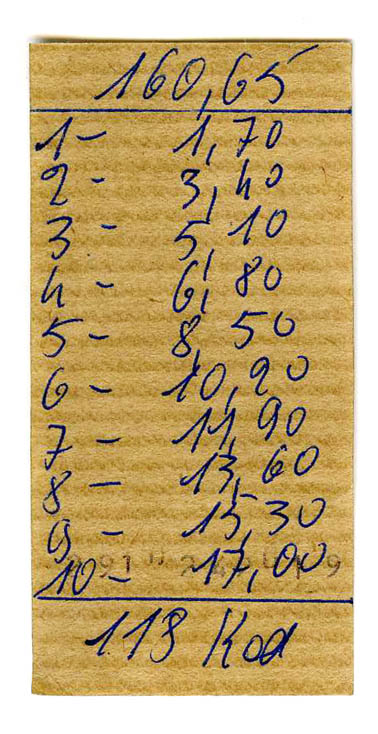 160,65
1 - 1,70
2 - 3,40
3 - 5,10
4 - 6,80
5 - 8,50
6 - 10,20
7 - 11,90
8 - 13,60
9 - 15,30
10 - 17,00
118 Kod